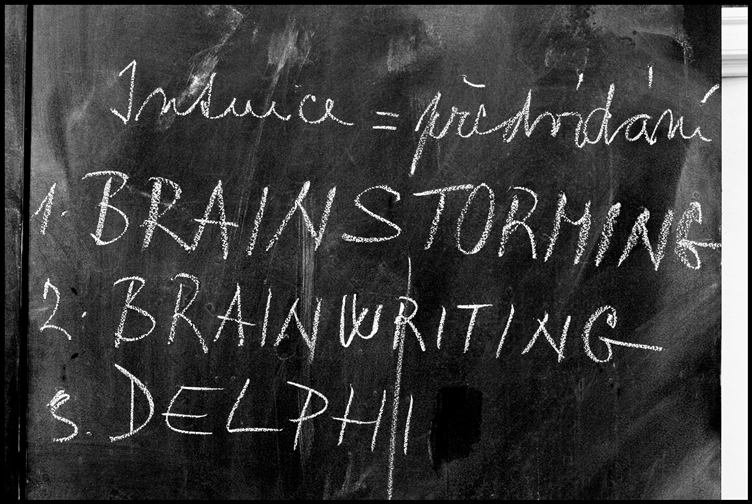 Intuice = předvídání
1. BRAINSTORMING
2. BRAINWRITING
3. DELPHI